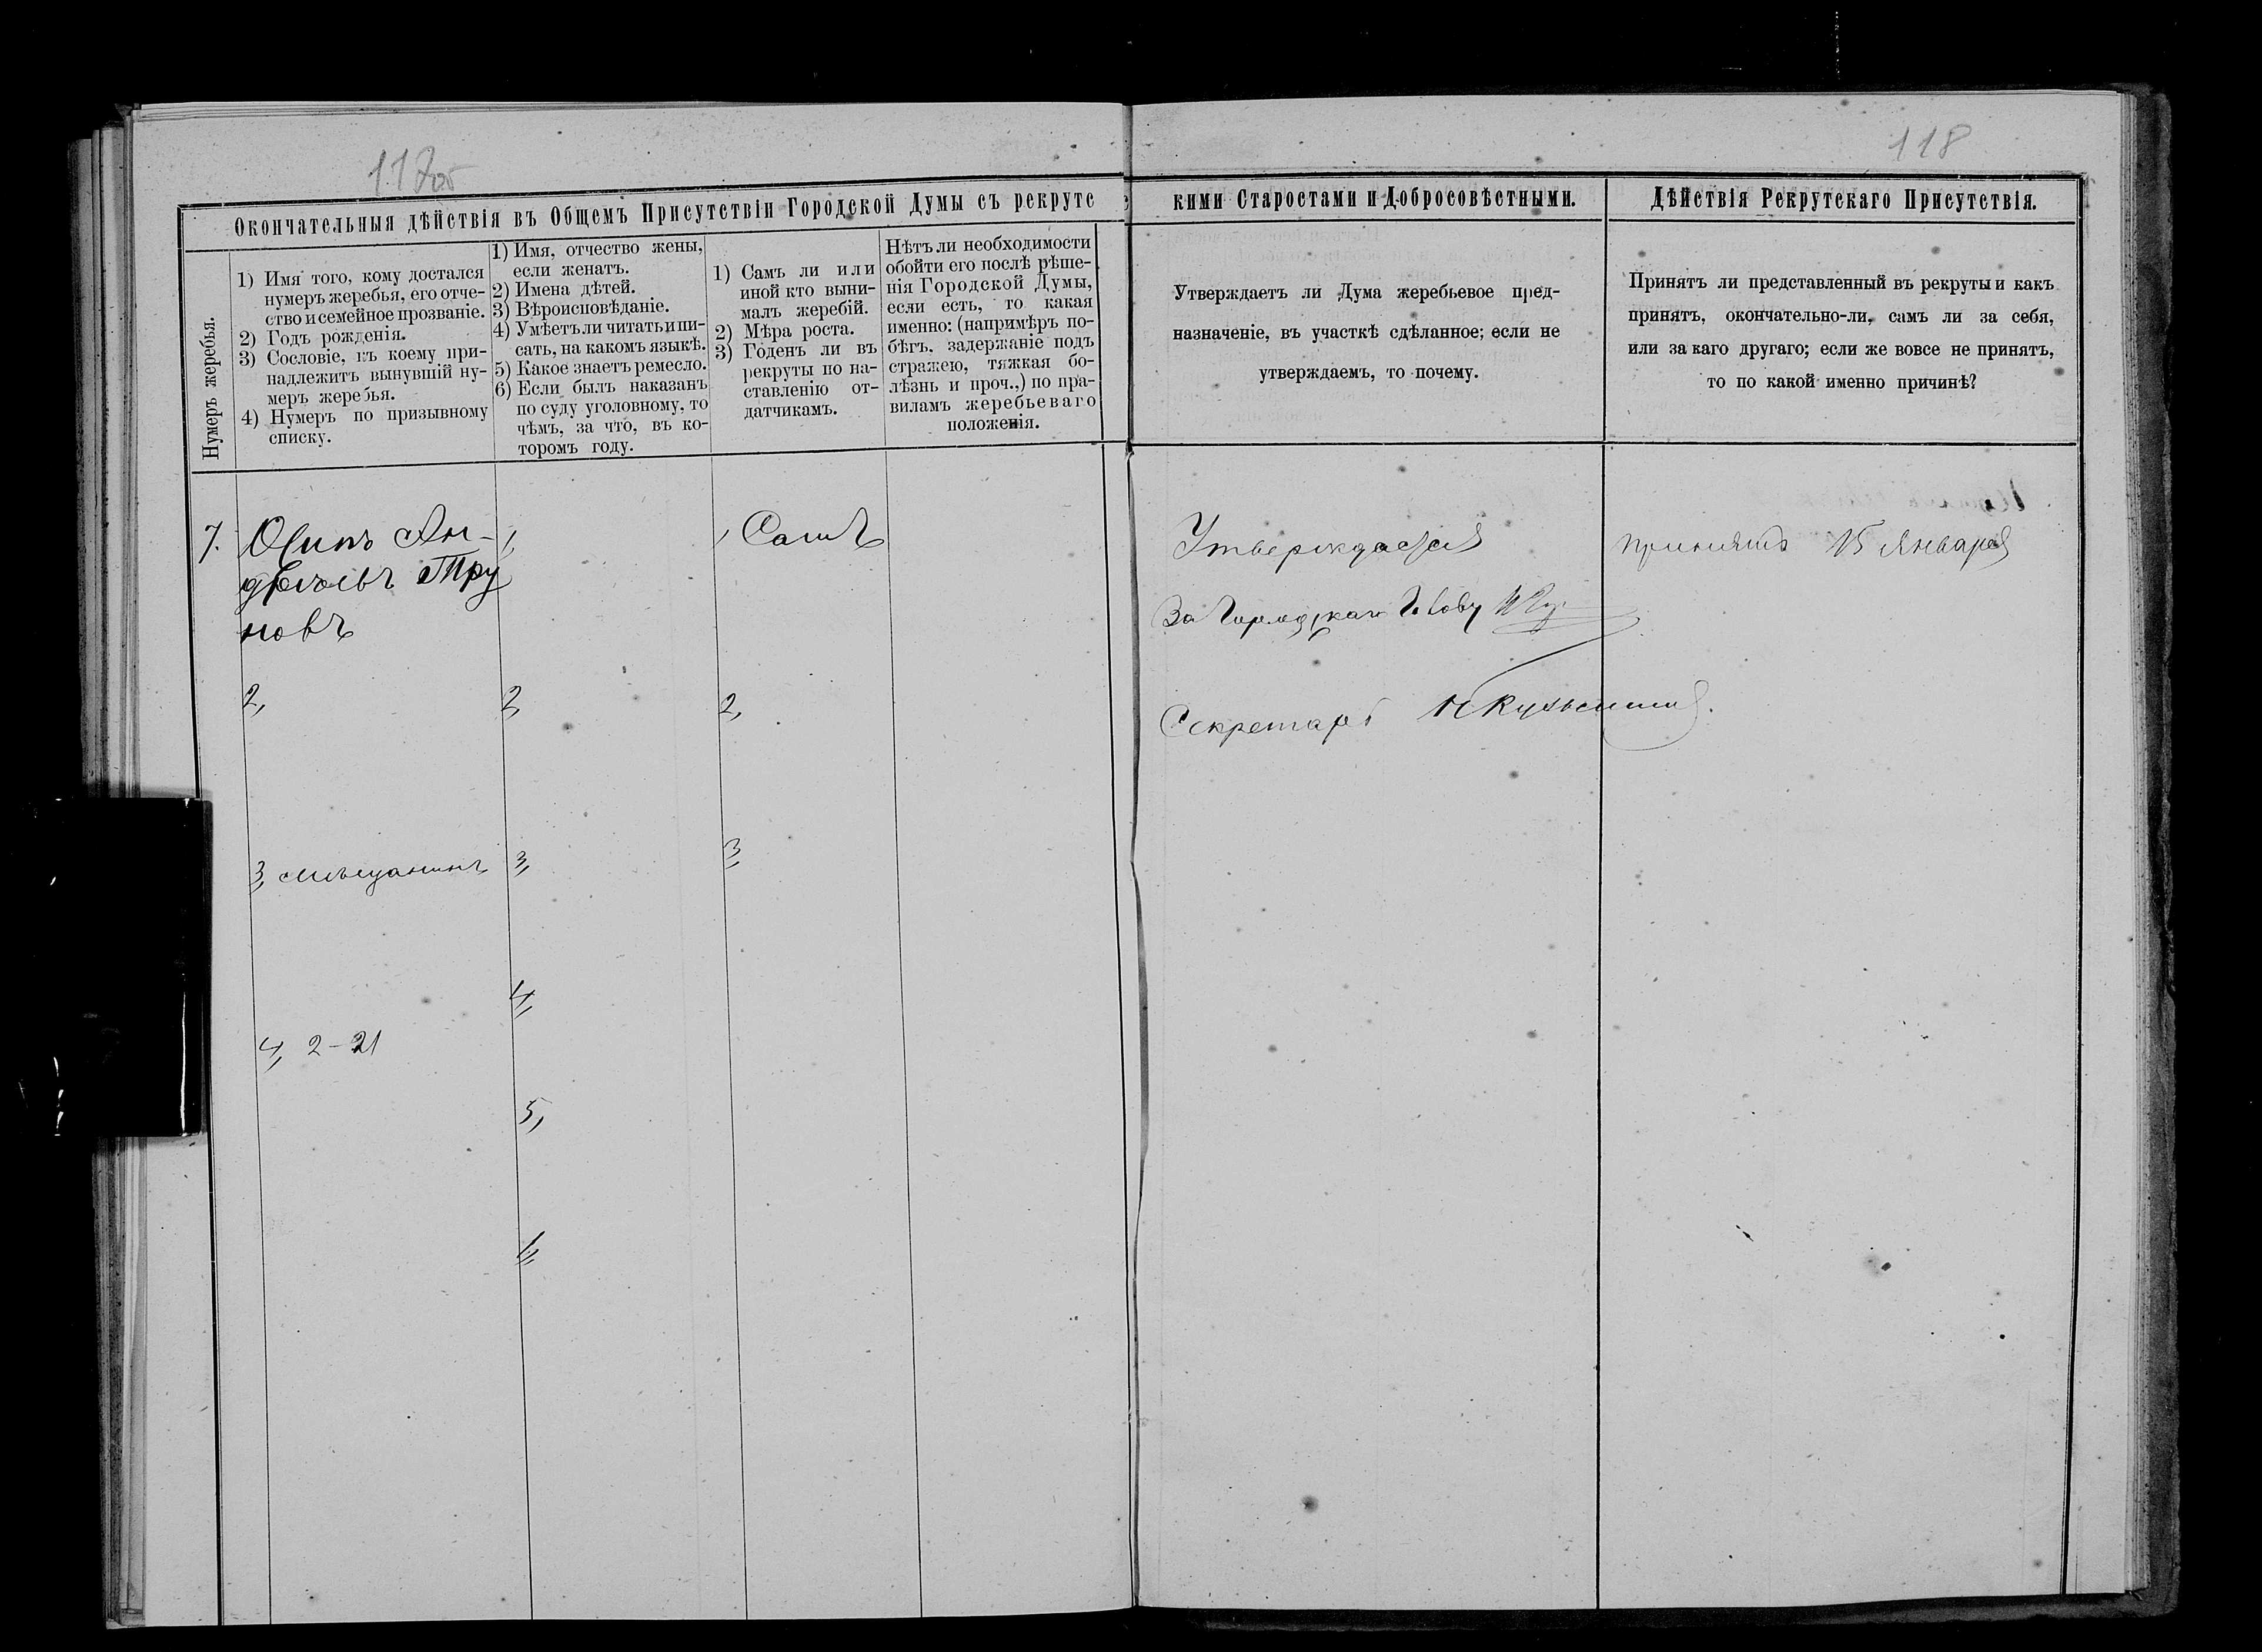 117об
118
Окончательныя дѣйствія въ Общемъ Присутствіи Городской Думы съ рекрутс
кими Старостами и Добросовѣстными.
Дѣйствія Рекрутскаго Присутствія.
Нумеръ жеребья.
1) Имя того, кому достался
нумеръ жеребья, его отче-
ство и семейное прозваніе.
2) Годъ рожденія.
3) Сословіе, къ коему при-
надлежитъ вынувшій ну-
меръ жеребья.
4) Нумеръ по призывному
списку.
1) Имя, отчество жены,
если женатъ.
2) Имена дѣтей.
3) Вѣроисповѣданіе.
4) Умѣетъ ли читать и пи-
сать, на какомъ языкѣ.
5) Какое знаетъ ремесло.
6) Если былъ наказанъ
по суду уголовному, то
чѣмъ, за что, въ ко-
торомъ году.
1) Самъ ли или
иной кто выни-
малъ жеребій.
2) Мѣра роста.
3) Годенъ ли въ
рекруты по на-
ставленію от-
датчикамъ.
Нѣтъ ли необходимости
обойти его послѣ рѣше-
нія Городской Думы,
если есть, то какая
именно: (напримѣръ по-
бѣгъ, задержаніе подъ
стражею, тяжкая бо-
лѣзнь и проч.,) по пра-
виламъ жеребьеваго
положенія.
Утверждаетъ ли Дума жеребьевое пред-
назначеніе, въ участкѣ сдѣланное; если не
утверждаемъ, то почему.
Принятъ ли представленный въ рекруты и какъ
принятъ, окончательно-ли, самъ ли за себя,
или за каго другаго; если же вовсе не принятъ,
то по какой именно причинѣ?
7. Осипъ Ан-
дреевъ Тру
новъ
2,
3, Мѣщанинъ
4, 2-21
1,
2,
3,
4,
5,
6,
1, Самъ
2,
3,
Утверждается
За Городскаго Голову
Секретарь
принятъ 15 Января